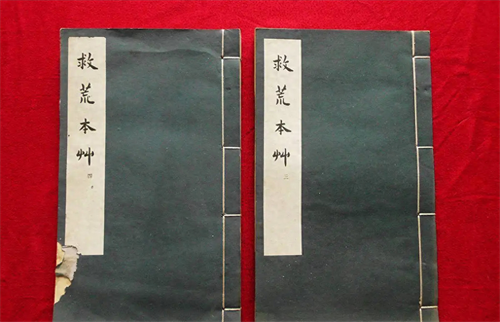 救荒本艸
四
救荒本艸
三